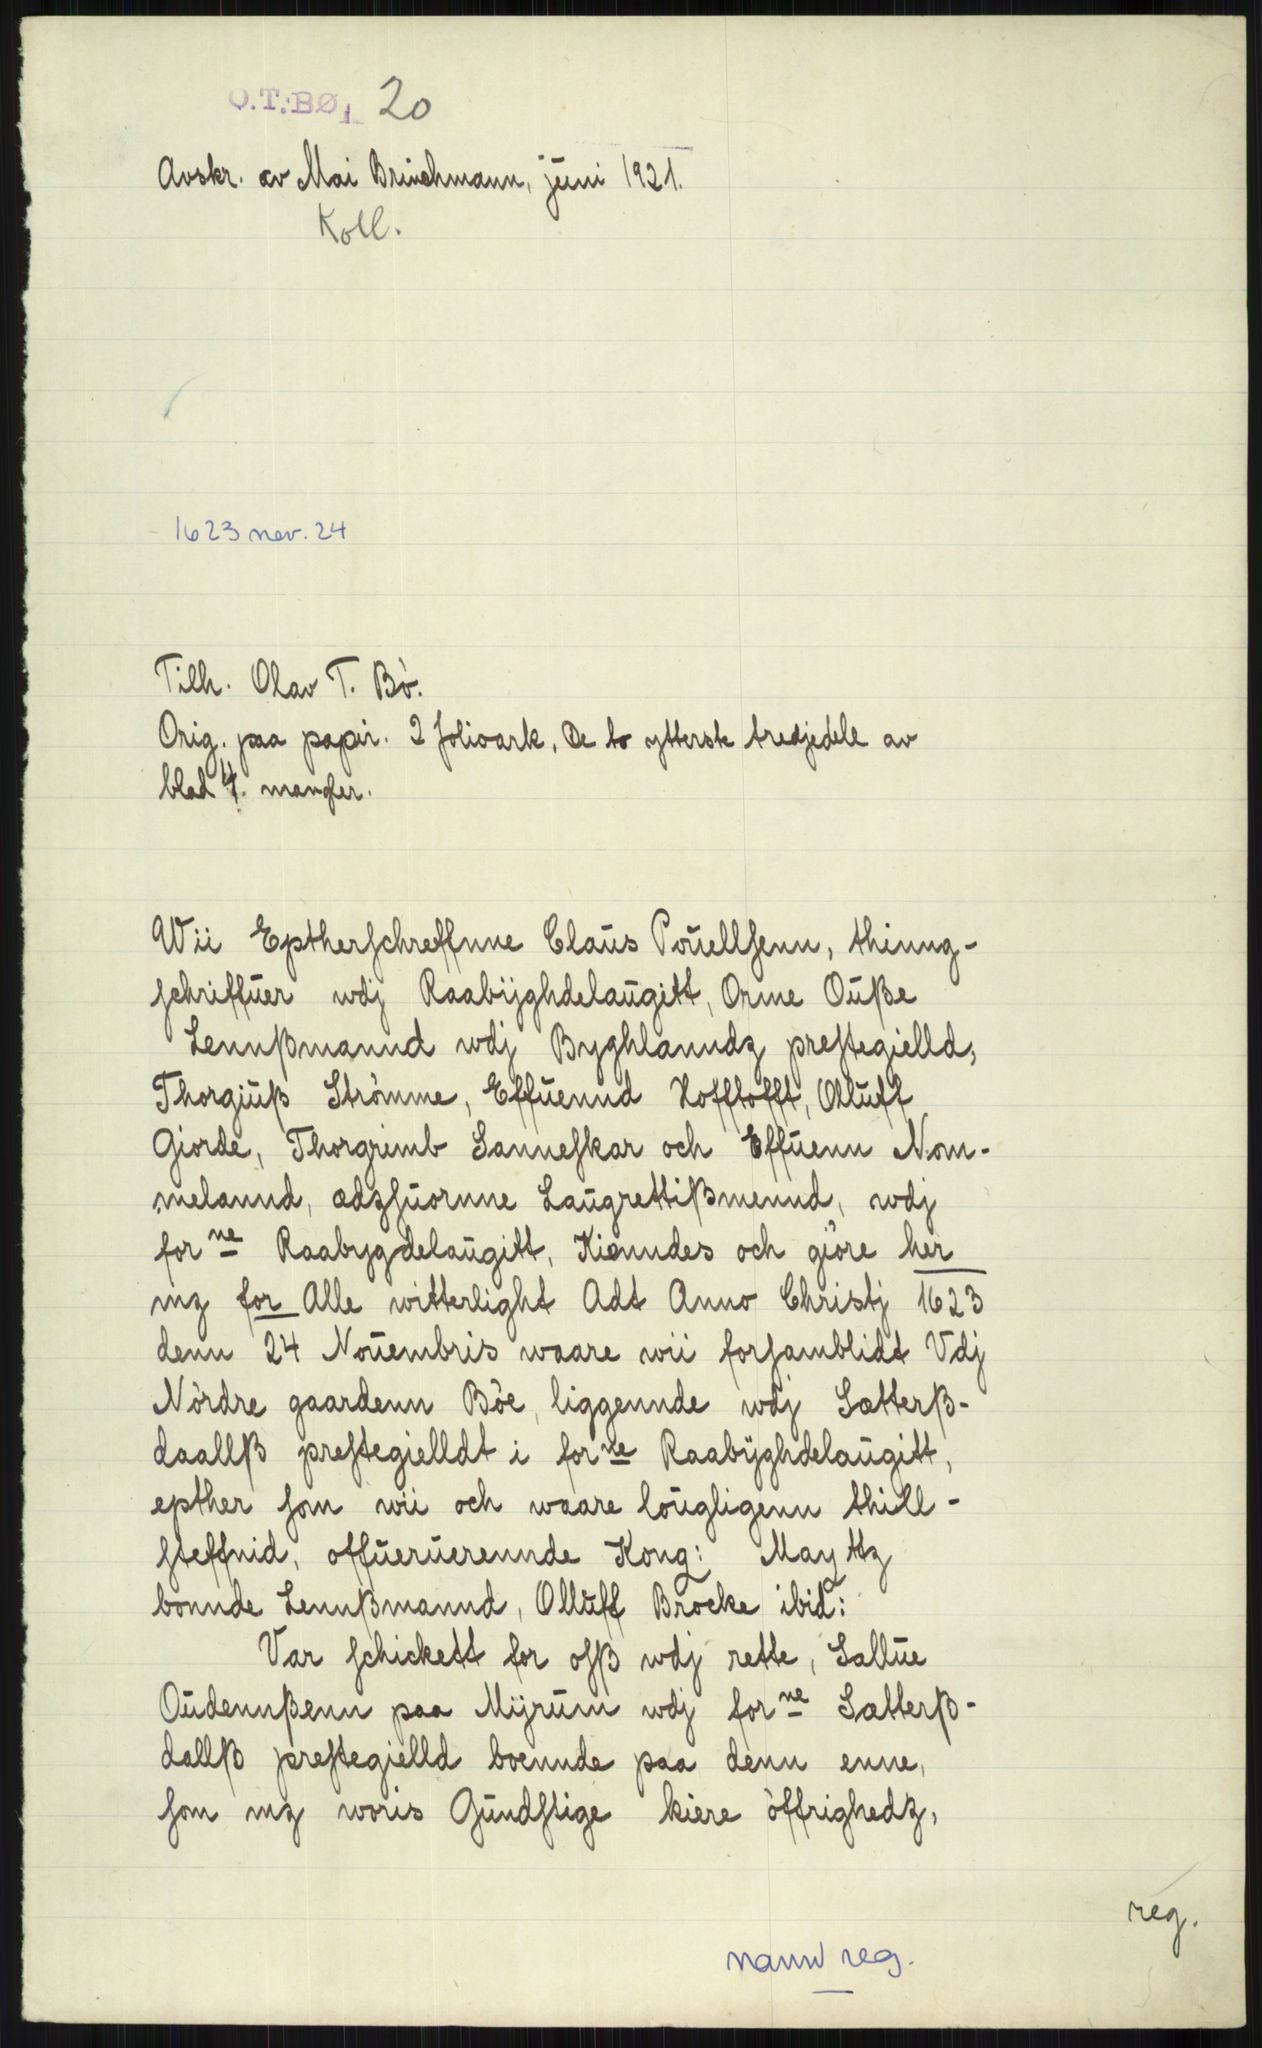 O.T.BØ, 20
Avskr. av Mai Brinchmann, juni 1921.
Koll.
1623 nov. 24
Tilh. Olav T. Bò.
Orig. paa papir. 2 folioark. De to ytterste tredjedele av
blad 4. mangler.
Wii Eptherschreffnne Claŭs Poŭellsenn, thinng-
schriffŭer wdj Raabÿghdelaŭgitt, Orme Oŭße
Lennßmannd wdj Byghlanndz prestegielld,
Thorgiŭß Strömme, Effŭennd Hofftofft, Ollŭff
Giorde, Thorgrimb Sanneskar och Effŭenn Nom-
melannd, ædzsŭornne Laŭgrettißmennd, wdj
forne Raabygdelaŭgitt, Kienndes och giöre her
mz for Alle witterlight Adt Anno Christj 1623
denn 24 Noŭembris waare wii forsamblidt Vdj
Nördre gaardenn Böe, liggennde wdj Sætterß-
daallß prestegielldt i forne Raabÿghdelaŭgitt,
epther som wii och waare loŭgligenn thill-
steffnid, offŭerŭerennde Kong: Mayttz
bonnde Lennßmannd, Ollŭff Brocke ibid:
Var schickett for osß wdj rette, Sallŭe
Oŭdennßenn paa Mÿrŭm wdj forne Sætterß-
dallß prestegielld boennde paa denn enne,
som mz woris Gŭndstige kiere öffrighedz,
reg.
navnreg.